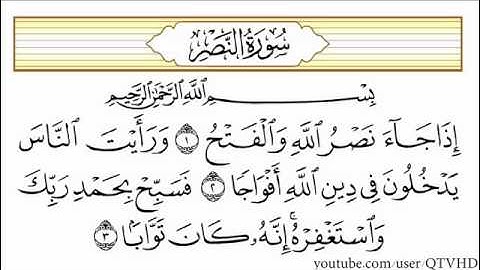 سُورَةُ النَّصْرِ
بِسْمِ اللَّهِ الرَّحْمَٰنِ الرَّحِيمِ
إِذَا جَآءَ نَصْرُ اللَّهِ وَالْفَتْحُ ١ وَرَأَيْتَ النَّاسَ
يَدْخُلُونَ فِي دِينِ اللَّهِ أَفْوَاجًا ٢ فَسَبِّحْ بِحَمْدِ رَبِّكَ
وَاسْتَغْفِرْهُ ۚ إِنَّهُ كَانَ تَوَّابًا ٣
youtube.com/user/QTVHD